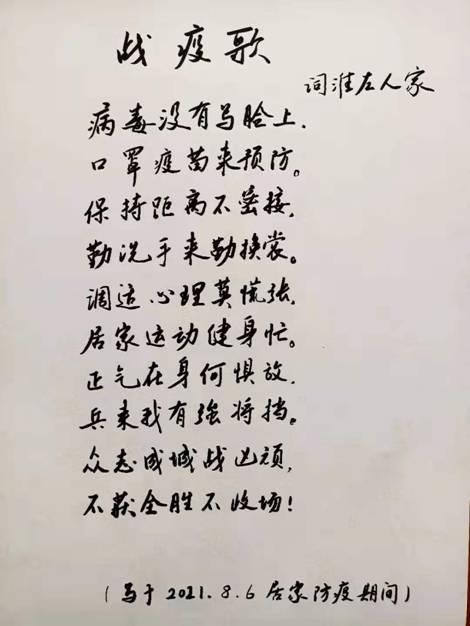 战疫歌
词淮左人家
病毒没有写脸上.
口罩疫苗来预防。
保持距离不密接.
勤洗手来勤换裳。
调适心理莫慌张.
居家运动健身忙。
正气在身何惧放.
兵来我有强将挡。
众志成城战凶顽,
不获全胜不收场!
(写于2021.8.6居家防疫期间)